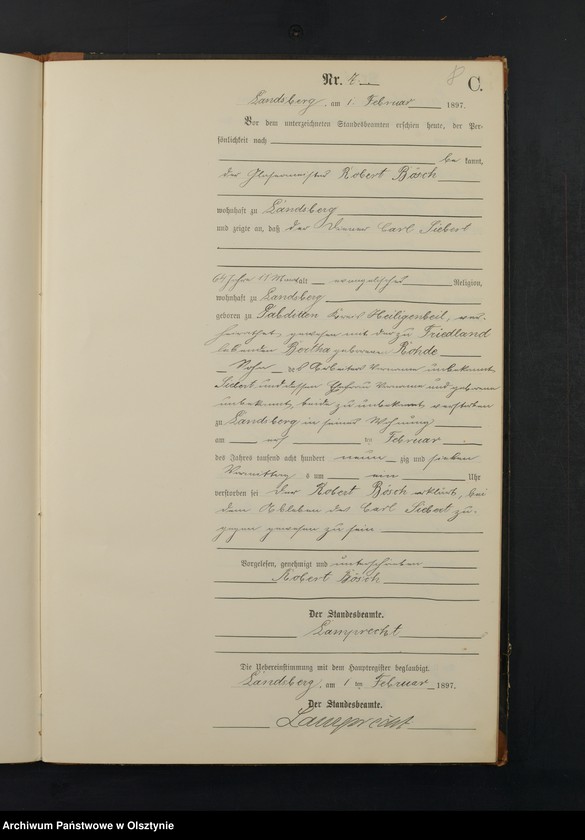 8 C.
Nr. 7
Landsberg, am 1. Februar 1897.
Vor dem unterzeichneten Standesbeamten erschien heute, der Per-
sönlichkeit nach
be kannt,
der Glasermeister Robert Bösch
wohnhaft zu Landsberg
und zeigte an, daß der Diener Carl Siebert
64 Jahre 11 Monat alt evangelischer Religion,
wohnhaft zu Landsberg
geboren zu Pabditten Kreis Heiligenbeil, ver-
heirathet gewesen mit der zu Friedland
lebenden Bertha geborenen Rohde
Sohn des Arbeiters Vorname unbekannt
Siebert und dessen Ehefrau Vorname und geborene
unbekannt, beide zu unbekannt, verstorben
zu Landsberg in seiner Wohnung
am ersten Februar
des Jahres tausend acht hundert neun zig und sieben
Vormittag s um ein Uhr
verstorben sei Der Robert Bösch erklärt, bei
dem Ableben des Carl Siebert zu-
gegen gewesen zu sein
Vorgelesen, genehmigt und unterschrieben
Robert Bösch
Der Standesbeamte.
Lamprecht
Die Uebereinstimmung mit dem Hauptregister beglaubigt.
Landsberg, am 1 ten Februar 1897.
Der Standesbeamte.
Lamprecht
Archiwum Państwowe w Olsztynie